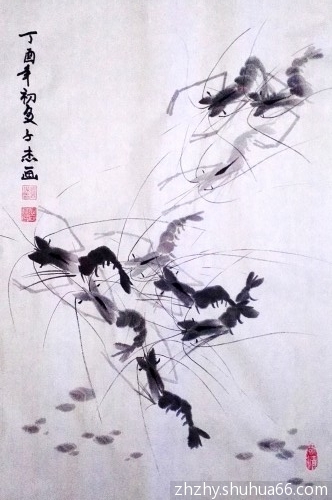 丁酉年初夏子杰画
zhzhy.shuhua66.com